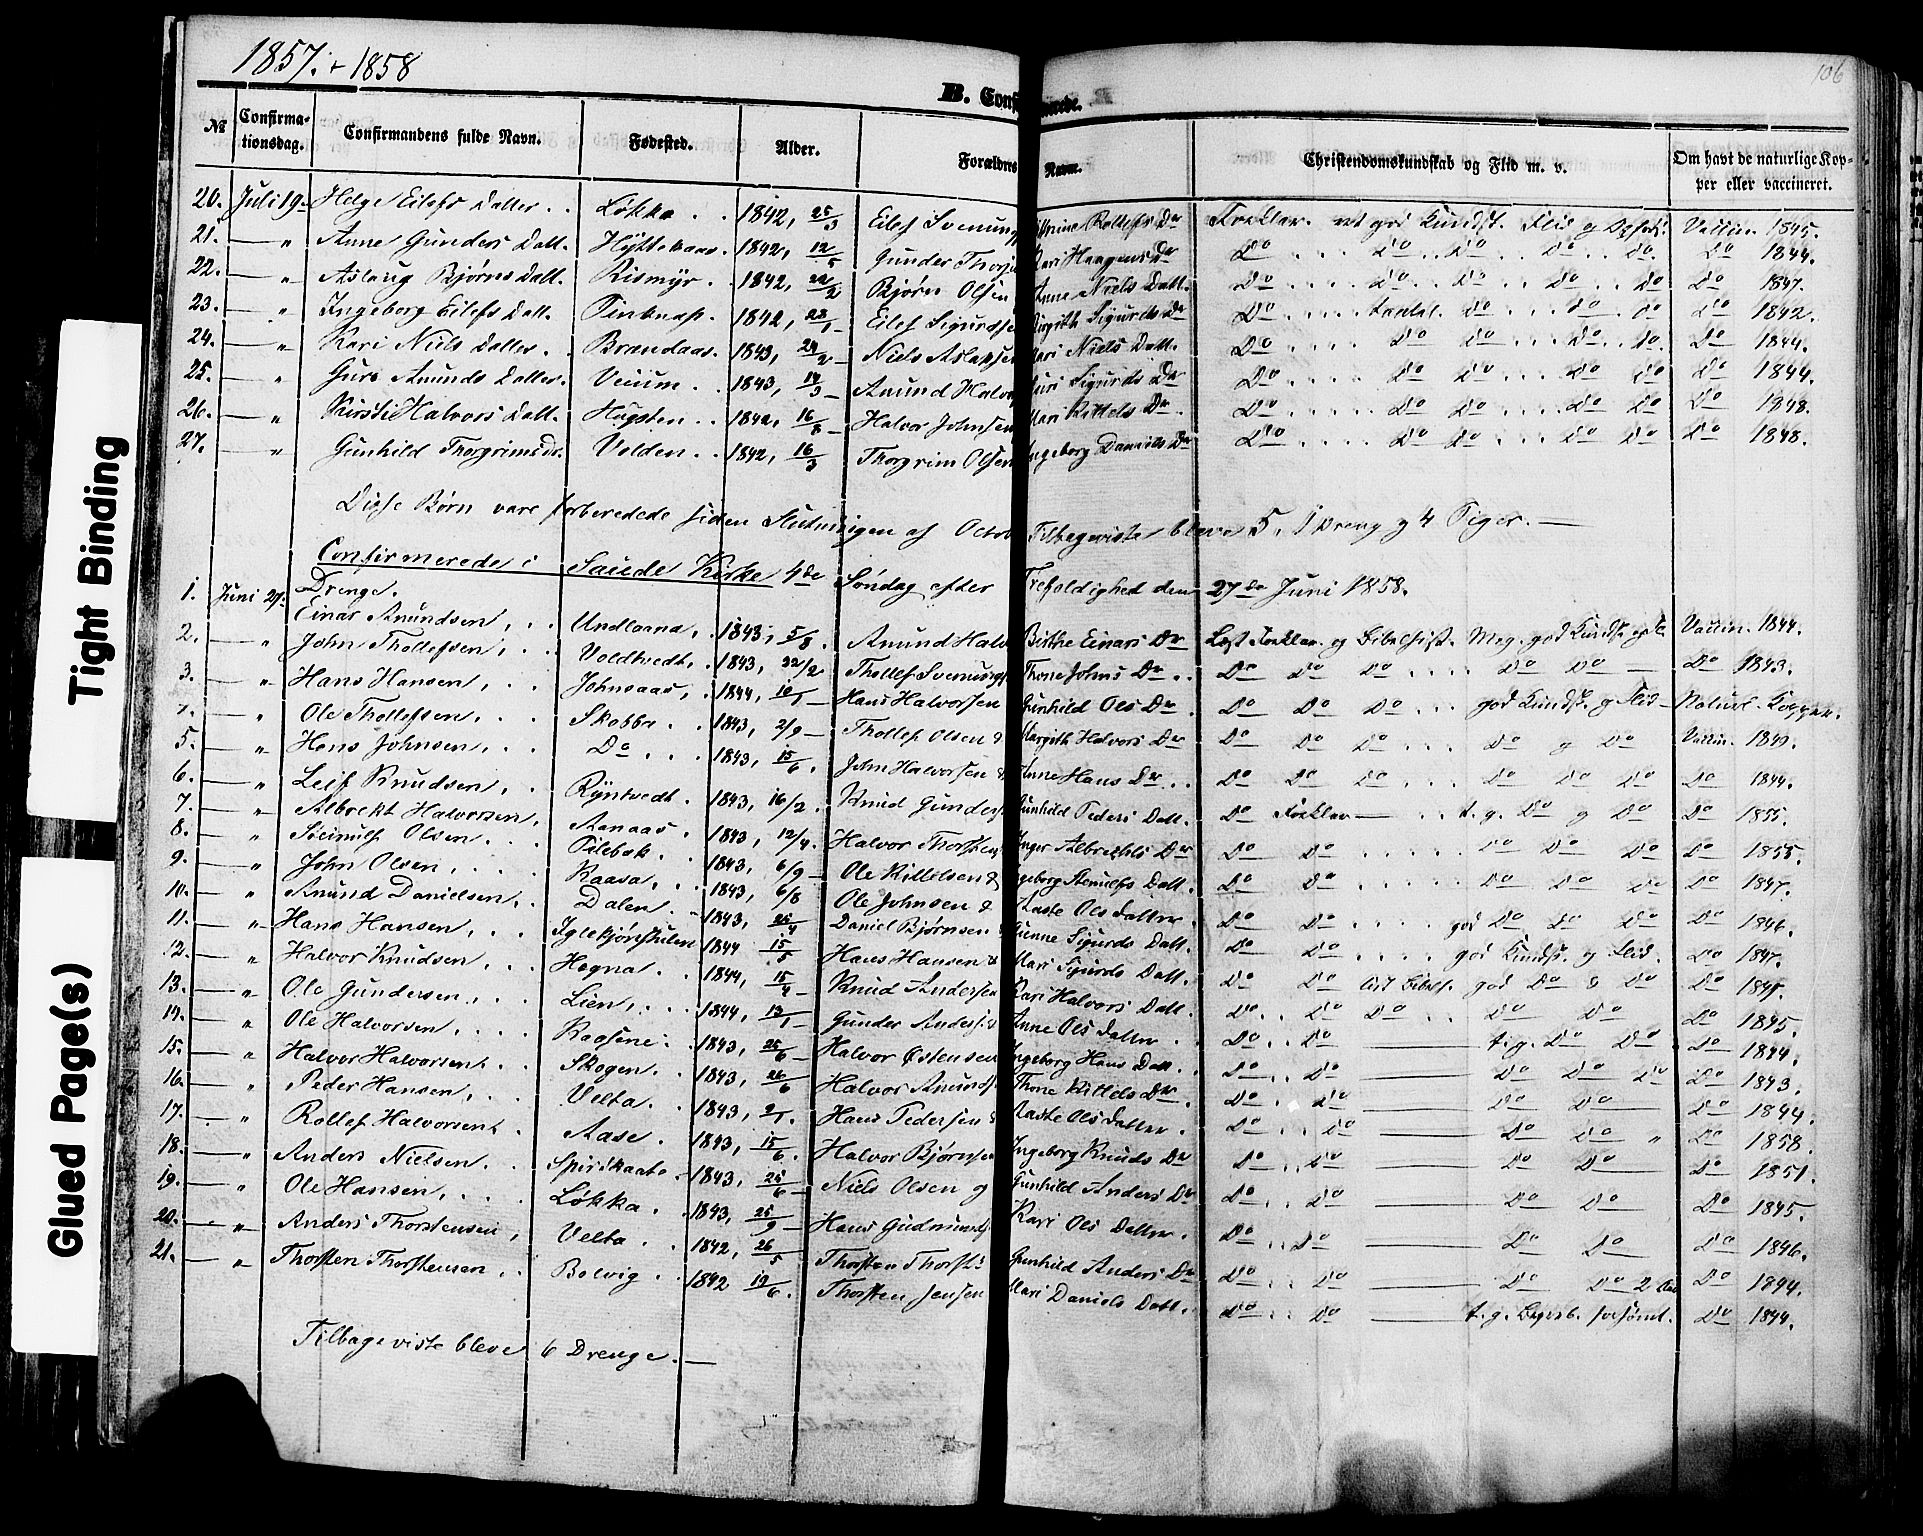 1857. + 1858
106
B. Conf mande.
№ Confirma-tionsdag. Confirmandens fulde Navn. Fødested. Alder. Forældres Navn. Christendomskundskab og Flid m. v. Om havt de naturlige Kopper eller vaccineret.
20. Juli 19. Helge Eilefs Datter . . Løkka . . 1842, 25/3 Eilef Svenung Rollefs Dr Forklar. mgod Kundsk. Flid g Opførs. Vaccin. 1845.
21. — " Anne Gunders Datt. Hyttekaas. 1842, 12/5 Gunder Thorj Kari Haagens Dr Do . . . Do . . Do . . Do . . Do. Do 1844.
22. — " Aslaug Bjørns Datt. Rismyr . 1842, 22/2 Bjørn Olsen Anne Niels Datt. Do . . . . Do . . Do . . Do . . Do Do 1847.
23. — " Ingeborg Eilefs Datt. 1842, 23/1 — Eilef Sigurdse Birgith Sigurds Dr Do . . . . Do . . . Do . Do Do 1842.
24. — " Kari Niels Datter. . Brændaas. 1843, 24/2 — Niels Aslaksen Kari Niels Datt. Do . . . . Do Do . . . Do . Do. Do 1844.
25. — " Guro Anunds Datter. Veium . . 1843, 14/3 — Anund Halvo Guri Sigurds Dr Do . . . . Do Do . . . Do Do Do 1844.
26. — " Kirsti Halvors Datt. Høgsten . . 1842, 16/8 — Halvor Johnsen Mari Kittels Dr . Do . . . . . Do Do . . . Do Do Do 1848.
27. " Gunhild Thorgrimsdr. Volden . . 1842, 16/3 Thorgrim Olsen Ingeborg Daniels Dr Do . . . . . Do Do . . . Do Do Do 1848.
Disse Børn vare forberedede siden Slutningen af Octob Tilbageviste bleve 5, 1 Dreng g 4 Piger. —
Confirmerede i Sauede Kirke 4de Søndag efter Trefoldighed den 27de Juni 1858.
Drenge.
1. Juni 27. Einar Anundsen, . . Undlaana, . 1843, 5/8 Anund Halv Birthe Einars Dr Læst Forklar. g Bibelhist. Meg. god Kundsk. g Vaccin. 1844.
2. — " John Thollefsen, . . Voldtvedt, . 1843, 22/2 Thollef Svenungs Thone Johns Dr . . Do Do Do . . . . Do Do — Do 1843.
3. — " Hans Hansen, . . Johnsaas, . 1844, 10/1 — Hans Halvorsen Gunhild Ols Dr . Do Do Do . . . god Kundsk. g Flid — Naturl. Kopper.
4. — " Ole Thollefsen, . . . Skobba . . 1843, 2/9 — Thollef Olsen & Margith Halvors Dr Do Do Do . . . . Do g Do Vaccin. 1840.
5. — " Hans Johnsen, . . . Do . . . 1843, 15/6 . John Halvorsen & Anne Hans Dr . . . Do Do Do . . . . Do Do Do Do 1844.
6. — " Leif Knudsen, . . Ryntvedt . 1843, 16/2 . Knud Gunders Gunhild Peders Datt. Do Forklar — . . t. g. Do g Do Do 1855.
7. — " Albrekt Halvorsen, Aanaas . 1843, 12/4. Halvor Thorsten Inger Albrechts Dr Do Do . . . . . Do Do Do Do 1855.
8. — " Steinulf Olsen, . . . . Pilebak. 1843, 6/9 — Ole Kittelsen & Ingeborg Stenulfs Datt. Do Do . . . . . . Do Do Do Do 1847.
9. — " John Olsen, . . . . Raasa, . . 1843, 6/8 Ole Johnsen & Aaste Ols Datter . Do Do . . . . god Do Do Do Do 1846.
10. — " Anund Danielsen, . Dalen. . 1843, 25/4 Daniel Bjørnsen Gunne Sigurds Datt. Do Do . . . . god Kundsk. g Flid. Do 1847.
11. — " Hans Hansen, . . . Iglekjønshulen 1844 15/5 Hans Hansen & Mari Sigurds Datt. Do Do Bibelh. god Do & Do Do 1845.
12. — " Halvor Knudsen, . . Hogna . 1844, 15/4 — Knud Andersen Kari Halvors Datt. Do . . Do Do . . Do Do Do 1845.
13. — " Ole Gundersen, . . Lien, . . . 1844, 13/1 Gunder Anders. & Anne Ols Datter . Do . . Do —— t. g. Do Do Do 1844.
14. — " Ole Halvorsen, . . . . Kaasene . 1843, 25/6 — Halvor Østensen Ingeborg Hans Datt. Do . . Do —— Do Do Do Do 1843.
15. — " Halvor Halvorsen . . Skogen . 1843, 26/6 Halvor Anunds Thone Kittels Dr. Do . . Do —— Do Do Do 1844.
16. — " Peder Hansen, . . . Velta . 1843, 2/1. Hans Pedersen & Aaste Ols Datter . Do . . Do —— Do Do " Do 1858.
17. — " Rollef Halvorsen . Aase . 1843, 15/6. Halvor Bjørnsen Ingeborg Knuds Dr Do . . Do —— Do Do — Do 1851.
18. — " Anders Nielsen . . Spirekaate . 1843, 25/6 — Niels Olsen og Gunhild Anders Dr Do . . Do —— Do Do — Do 1845.
19. — " Ole Hansen, . . . . Løkka . 1843, 25/9 — Hans Gudmunds Kari Ols Datter . Do . . Do —— Do Do — Do 1846.
20. — " Anders Thorstensen, Velta . . 1842, 26/5 Thorsten Thorst. Gunhild Anders Dr Do . . Do —— Do Do Do 1844.
21. — " Thorsten Thorstensen, . . Bolvig . . 1842 19/6 . Thorsten Jensen Mari Daniels Datt. Do . . Do —— t. g. forsømt. Do 1844.
Tilbageviste bleve 6 Drenge. —
Tight Binding
Glued Page(s)